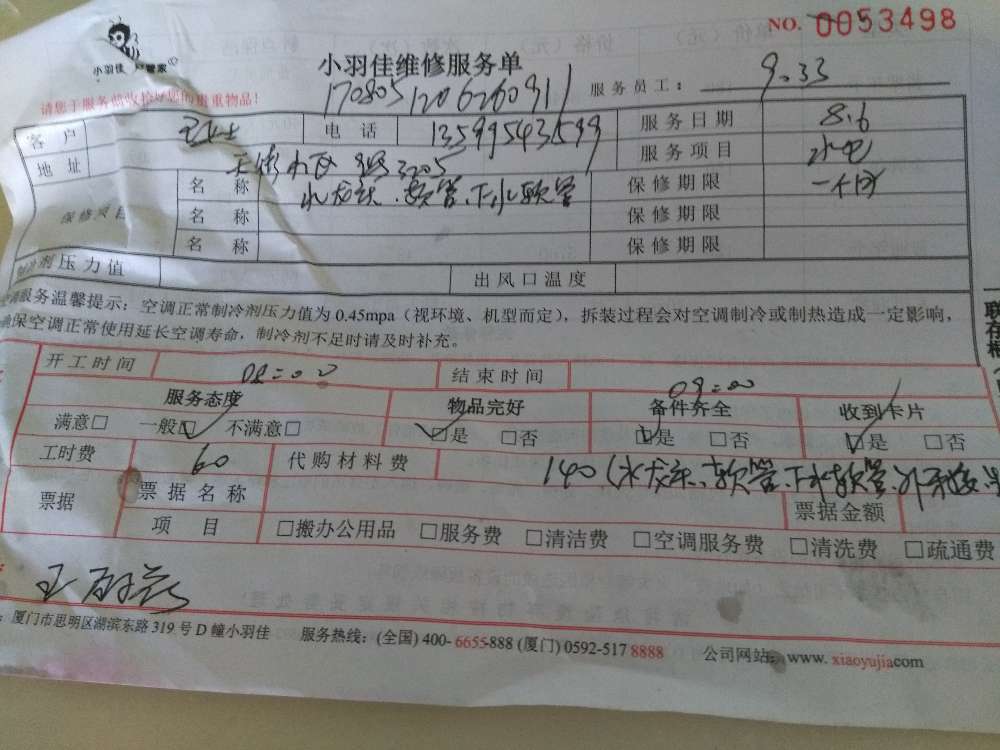 NO. 0053498
小羽佳 管家
小羽佳维修服务单
请您于服务前收拾好您的贵重物品!
1708051206260911
服务员工: 9.33
客户 王女士 电话 13599543599 服务日期 8.6
地址 3205 服务项目 水电
保修项目 名称 水龙头、软管、下水软管 保修期限 一个月
名称 保修期限
名称 保修期限
制冷剂压力值 出风口温度
服务温馨提示:空调正常制冷剂压力值为 0.45mpa(视环境、机型而定),拆装过程会对空调制冷或制热造成一定影响,
确保空调正常使用延长空调寿命,制冷剂不足时请及时补充。
联存根
开工时间 08:00 结束时间 09:00
服务态度 物品完好 备件齐全 收到卡片
满意□ 一般□ 不满意□ □是 □否 □是 □否 □是 □否
工时费 60 代购材料费 140(水龙头、软管、下水软管、
票据 票据名称 票据金额
项目 □搬办公用品 □服务费 □清洁费 □空调服务费 □清洗费 □疏通费
厦门市思明区湖滨东路 319 号 D 幢小羽佳 服务热线:(全国) 400- 6655-888 (厦门) 0592-517 8888 公司网站: www. xiaoyujia.com